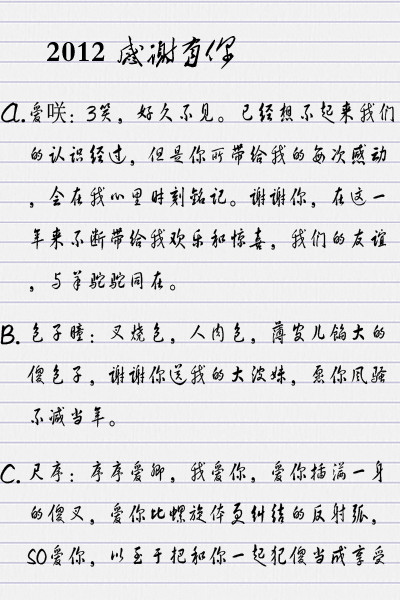 2012 感谢有你
A.爱咲：3笑，好久不见。已经想不起来我们
的认识经过，但是你所带给我的每次感动
，会在我心里时刻铭记。谢谢你，在这一
年来不断带给我欢乐和惊喜，我们的友谊
，与羊驼驼同在。
B.包子瞳：叉烧包，人肉包，薄皮儿馅大的
傻包子，谢谢你送我的大波妹，愿你风骚
不减当年。
C.尺序：序序爱卿，我爱你，爱你插满一身
的傻叉，爱你比螺旋体更纠结的反射弧，
SO爱你，以至于把和你一起犯傻当成享受